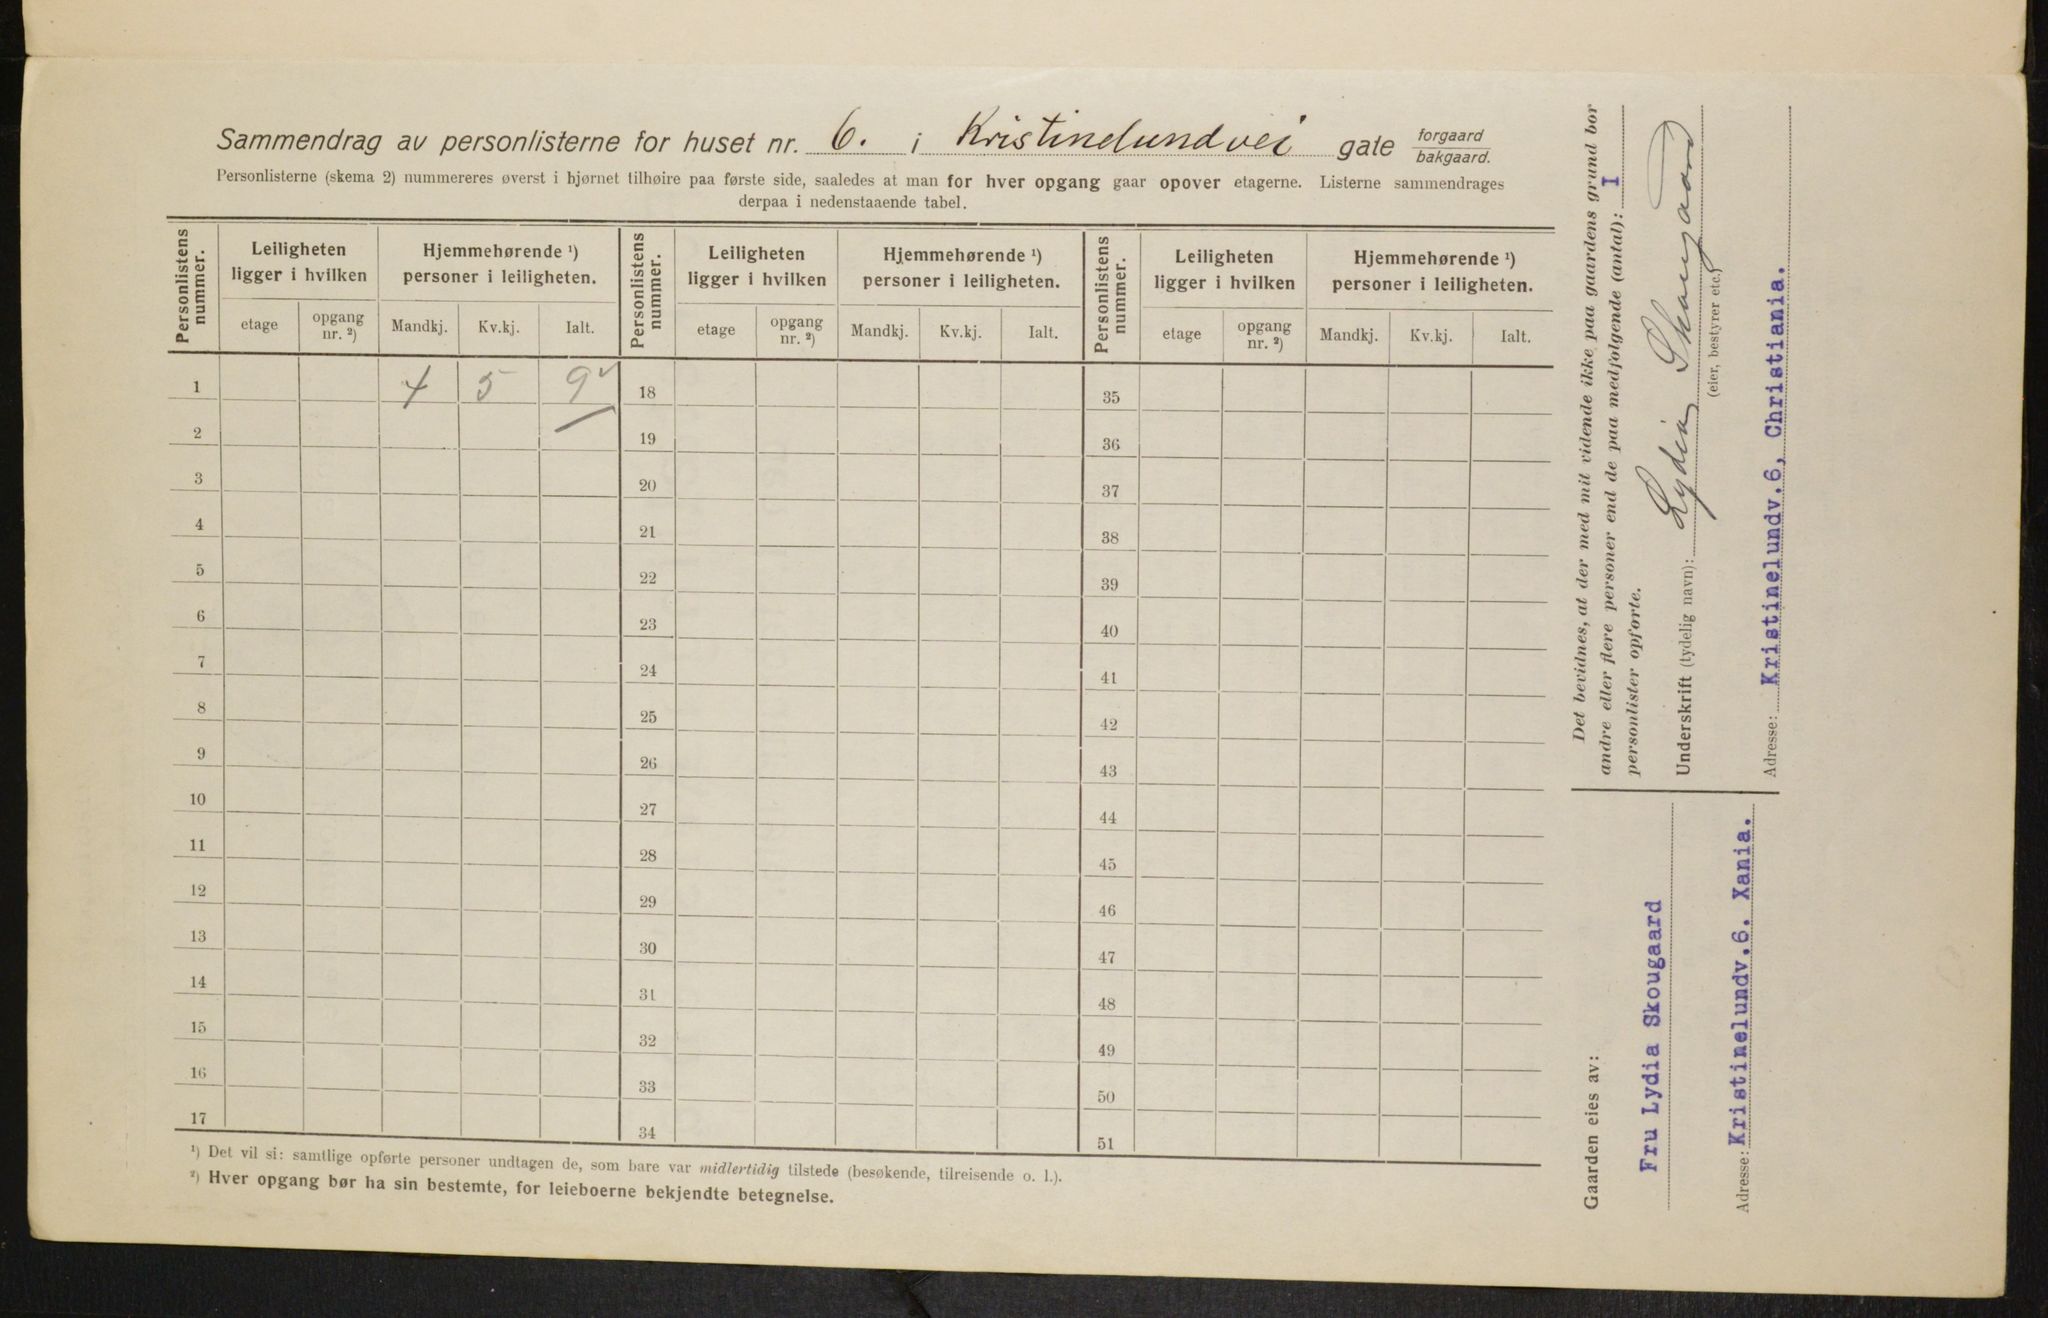 Sammendrag av personlisterne for huset nr. 6. i Kristinelundvei gate forgaard / bakgaard.
Personlisterne (skema 2) nummereres øverst i hjørnet tilhøire paa første side, saaledes at man for hver opgang gaar opover etagerne. Listerne sammendrages
derpaa i nedenstaaende tabel.
Personlistens nummer. Leiligheten ligger i hvilken Hjemmehørende ¹) personer i leiligheten. Personlistens nummer. Leiligheten ligger i hvilken Hjemmehørende ¹) personer i leiligheten. Personlistens nummer. Leiligheten ligger i hvilken Hjemmehørende ¹) personer i leiligheten.
etage opgang nr. ²) Mandkj. Kv.kj. Ialt. etage opgang nr. ²) Mandkj. Kv.kj. Ialt. etage opgang nr. ²) Mandkj. Kv.kj. Ialt.
1 4 5 9 18 35
2 19 36
3 20 37
4 21 38
5 22 39
6 23 40
7 24 41
8 25 42
9 26 43
10 27 44
11 28 45
12 29 46
13 30 47
14 31 48
15 32 49
16 33 50
17 34 51
¹) Det vil si: samtlige opførte personer undtagen de, som bare var midlertidig tilstede (besøkende, tilreisende o. l.).
²) Hver opgang bør ha sin bestemte, for leieboerne bekjendte betegnelse.
Det bevidnes, at der med mit vidende ikke paa gaardens grund bor
andre eller flere personer end de paa medfølgende (antal): I
personlister opførte.
Underskrift (tydelig navn): Lydia Skougaard
(eier, bestyrer etc.)
Adresse: Kristinelundv.6, Christiania.
Gaarden eies av:
Fru Lydia Skougaard
Adresse: Kristinelundv.6. Xania.